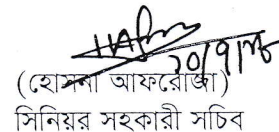 ২০/৭/১৬
(হোসনা আফরোজা)
সিনিয়র সহকারী সচিব